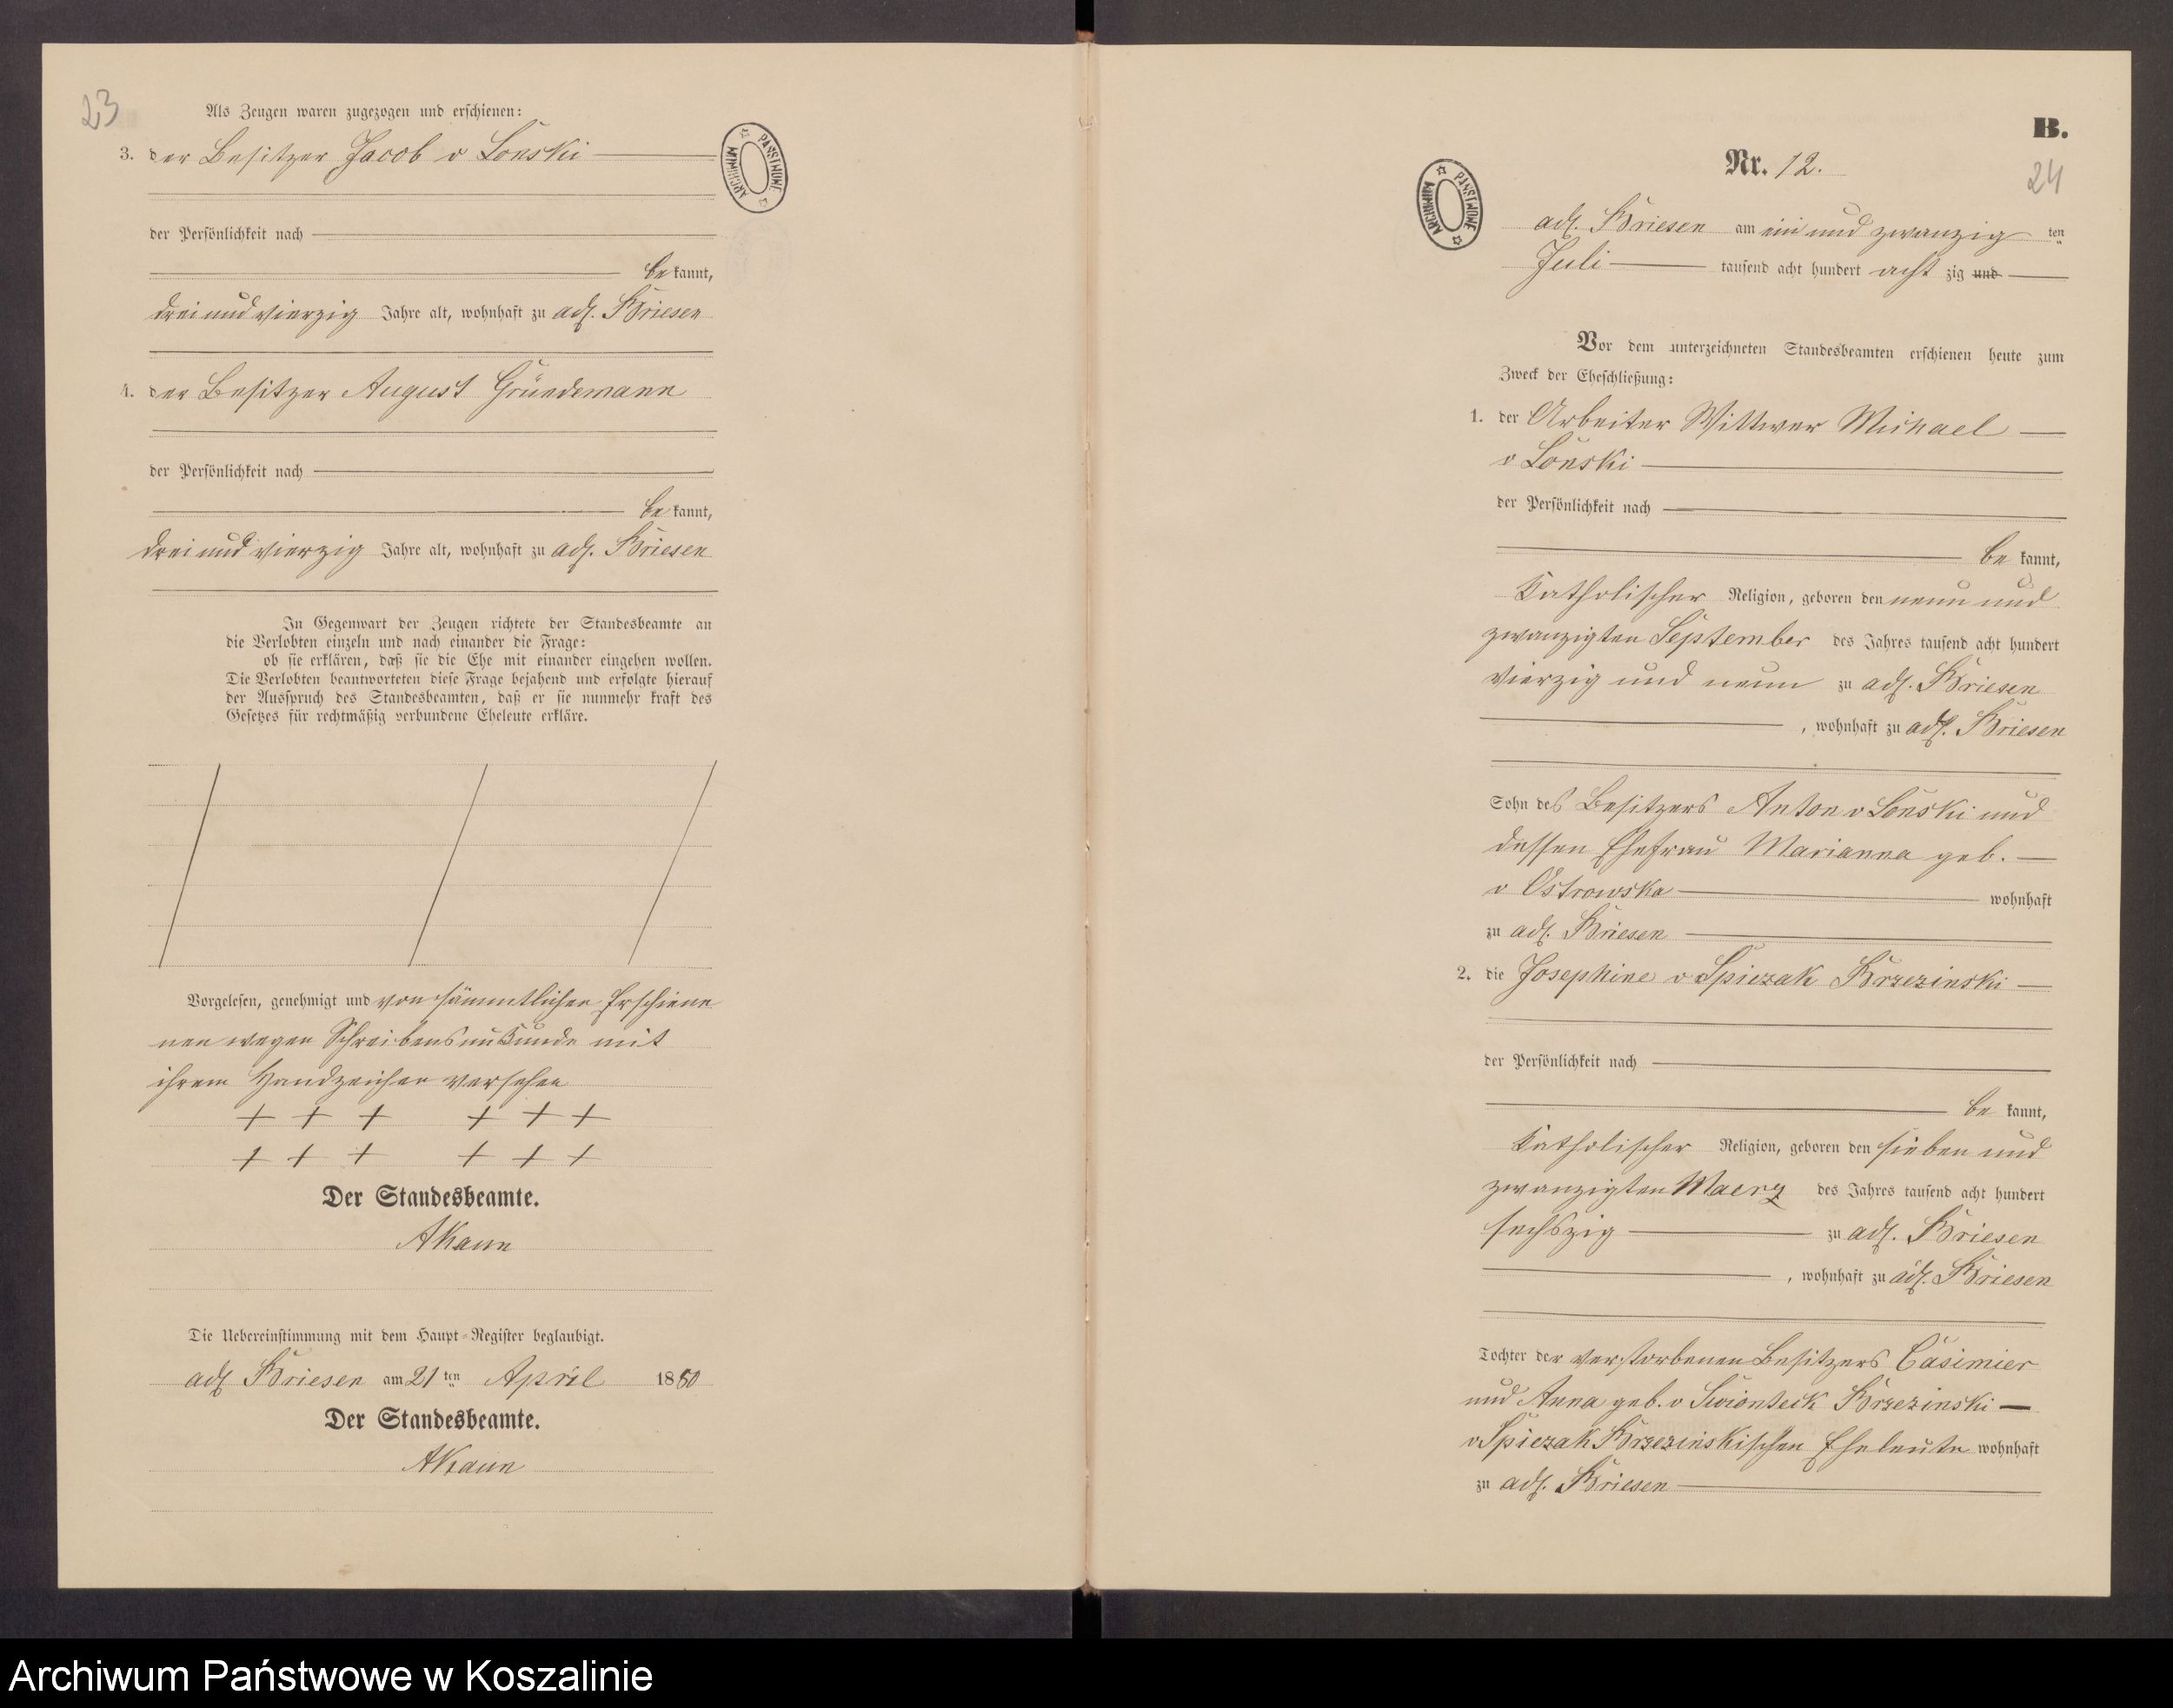 23
Als Zeugen waren zugezogen und erschienen:
3. der Besitzer Jacob v Lonski
der Persönlichkeit nach
be kannt,
drei und vierzig Jahre alt, wohnhaft zu adl. Briesen
4. der Besitzer August Gründemann
der Persönlichkeit nach
be kannt,
drei und vierzig Jahre alt, wohnhaft zu adl. Briesen
In Gegenwart der Zeugen richtete der Standesbeamte an
die Verlobten einzeln und nach einander die Frage:
ob sie erklären, daß sie die Ehe mit einander eingehen wollen.
Die Verlobten beantworteten diese Frage bejahend und erfolgte hierauf
der Ausspruch des Standesbeamten, daß er sie nunmehr kraft des
Gesetzes für rechtmäßig verbundene Eheleute erkläre.
Vorgelesen, genehmigt und von sämmtlichen Erschiene
nen wegen Schreibensunkunde mit
ihrem Handzeichen versehen
+ + + + + +
+ + + + + +
Der Standesbeamte.
Die Uebereinstimmung mit dem Haupt-Register beglaubigt.
adl Briesen am 21 ten April 1880
Der Standesbeamte.
ARCHIWUM PAŃSTWOWE
B.
Nr. 12.
24
ARCHIWUM PAŃSTWOWE
adl. Briesen am ein und zwanzig ten
Juli tausend acht hundert acht zig und
Vor dem unterzeichneten Standesbeamten erschienen heute zum
Zweck der Eheschließung:
1. der Arbeiter Wittwer Michael
v Lonski
der Persönlichkeit nach
be kannt,
katholischer Religion, geboren den neun und
zwanzigten September des Jahres tausend acht hundert
vierzig und neun zu adl. Briesen
, wohnhaft zu adl. Briesen
Sohn des Besitzers Anton v Lonski und
dessen Ehefrau Marianna geb.
v Ostrowska wohnhaft
zu adl. Briesen
2. die Josephine v Spiczak Brzezinski
der Persönlichkeit nach
be kannt,
katholischer Religion, geboren den sieben und
zwanzigten Maerz des Jahres tausend acht hundert
sechszig zu adl. Briesen
, wohnhaft zu adl. Briesen
Tochter der verstorbenen Besitzers Casimier
und Anna geb. v Swionteck Brzezinski
v Spiczak Brzezinskischen Eheleute wohnhaft
zu adl. Briesen
Archiwum Państwowe w Koszalinie